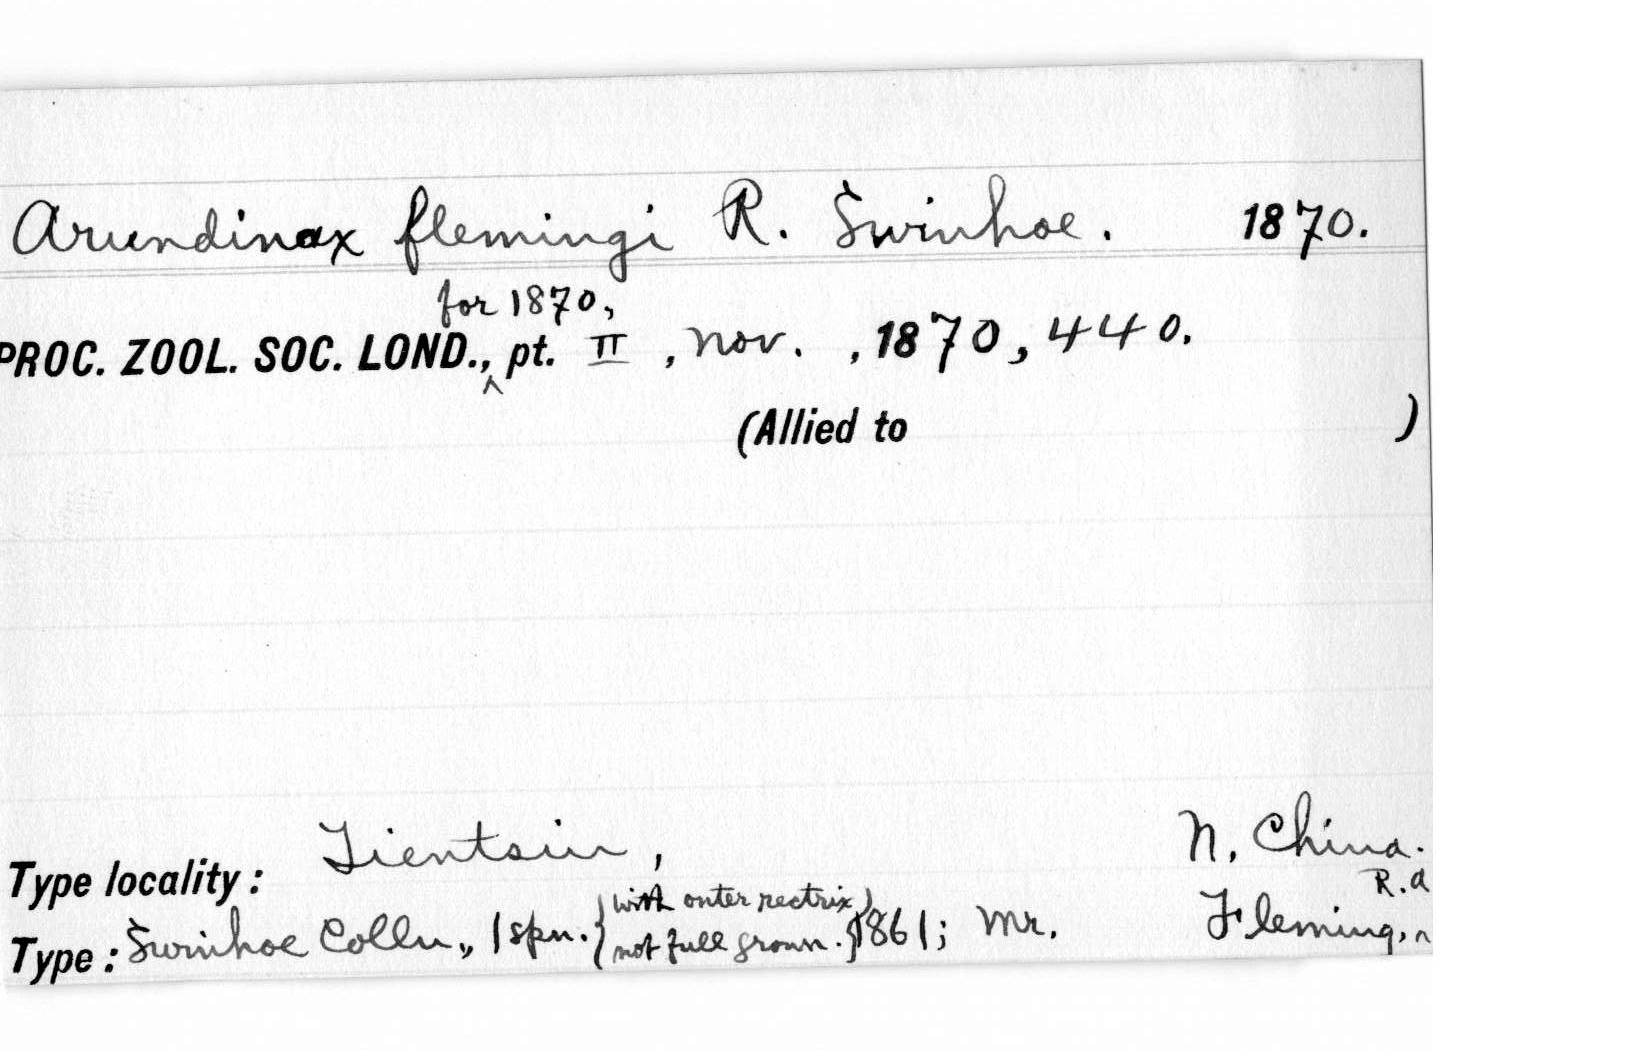 Arundinax flemingi R. Swinhoe. 1870.
for 1870,
PROC. ZOOL. SOC. LOND., pt. II, Nov., 1870, 440.
(Allied to )
Type locality: Tientsin, N. China.
R.A
Type: Swinhoe Colln., 1 spn. {with outer rectrix
not full grown.} 1861; Mr. Fleming,